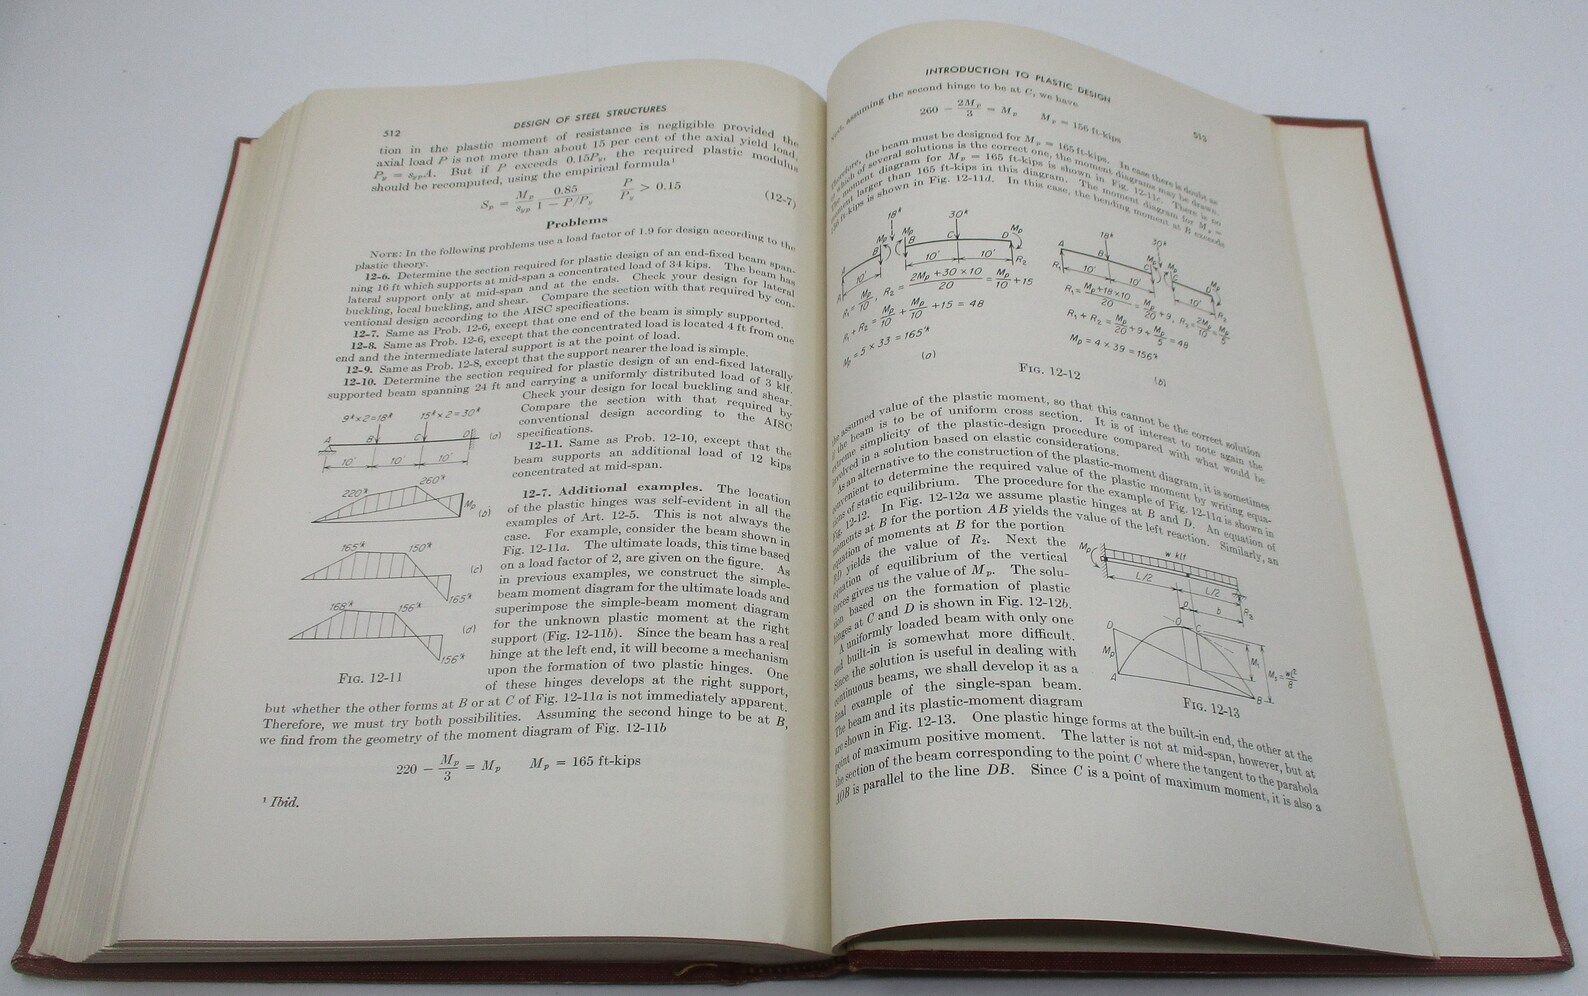 512
DESIGN OF STEEL STRUCTURES
tion in the plastic moment of resistance is negligible provided the
axial load P is not more than about 15 per cent of the axial yield load,
P_y = s_yp A. But if P exceeds 0.15P_y, the required plastic modulus
should be recomputed, using the empirical formula¹
S_p = M_p/s_yp 0.85/(1 − P/P_y)   P/P_y > 0.15   (12-7)
Problems
NOTE: In the following problems use a load factor of 1.9 for design according to the
plastic theory.
12-6. Determine the section required for plastic design of an end-fixed beam span-
ning 16 ft which supports at mid-span a concentrated load of 34 kips. The beam has
lateral support only at mid-span and at the ends. Check your design for lateral
buckling, local buckling, and shear. Compare the section with that required by con-
ventional design according to the AISC specifications.
12-7. Same as Prob. 12-6, except that one end of the beam is simply supported.
12-8. Same as Prob. 12-6, except that the concentrated load is located 4 ft from one
end and the intermediate lateral support is at the point of load.
12-9. Same as Prob. 12-8, except that the support nearer the load is simple.
12-10. Determine the section required for plastic design of an end-fixed laterally
supported beam spanning 24 ft and carrying a uniformly distributed load of 3 klf.
Check your design for local buckling and shear.
Compare the section with that required by
conventional design according to the AISC
specifications.
12-11. Same as Prob. 12-10, except that the
beam supports an additional load of 12 kips
concentrated at mid-span.
9ᵏ×2=18ᵏ 15ᵏ×2=30ᵏ
A B C D (a)
10' 10' 10'
220ᵏ 260ᵏ M_p (b)
165ᵏ 150ᵏ (c)
165ᵏ
168ᵏ 156ᵏ (d)
156ᵏ
FIG. 12-11
12-7. Additional examples. The location
of the plastic hinges was self-evident in all the
examples of Art. 12-5. This is not always the
case. For example, consider the beam shown in
Fig. 12-11a. The ultimate loads, this time based
on a load factor of 2, are given on the figure. As
in previous examples, we construct the simple-
beam moment diagram for the ultimate loads and
superimpose the simple-beam moment diagram
for the unknown plastic moment at the right
support (Fig. 12-11b). Since the beam has a real
hinge at the left end, it will become a mechanism
upon the formation of two plastic hinges. One
of these hinges develops at the right support,
but whether the other forms at B or at C of Fig. 12-11a is not immediately apparent.
Therefore, we must try both possibilities. Assuming the second hinge to be at B,
we find from the geometry of the moment diagram of Fig. 12-11b
220 − M_p/3 = M_p   M_p = 165 ft-kips
¹ Ibid.
INTRODUCTION TO PLASTIC DESIGN
513
assuming the second hinge to be at C, we have
260 − 2M_p/3 = M_p   M_p = 156 ft-kips
Therefore, the beam must be designed for M_p = 165 ft-kips. In case there is doubt as
which of several solutions is the correct one, the moment diagrams may be drawn.
The moment diagram for M_p = 165 ft-kips is shown in Fig. 12-11c. There is no
moment larger than 165 ft-kips in this diagram. The moment diagram for M_p =
ft-kips is shown in Fig. 12-11d. In this case, the bending moment at B exceeds
18ᵏ 30ᵏ
M_p B M_p B C D M_p
10' 10' 10' R₂
R₁ = M_p/10, R₂ = (2M_p + 30 × 10)/20 = M_p/10 + 15
R₁ + R₂ = M_p/10 + M_p/10 + 15 = 48
M_p = 5 × 33 = 165ᵏ
(a)
A 18ᵏ B 30ᵏ C M_p M_p C D M_p
R₁ 10' 10' 10' R₂
R₁ = (M_p + 18 × 10)/20 = M_p/20 + 9, R₂ = 2M_p/10 = M_p/5
R₁ + R₂ = M_p/20 + 9 + M_p/5 = 48
M_p = 4 × 39 = 156ᵏ
(b)
FIG. 12-12
the assumed value of the plastic moment, so that this cannot be the correct solution
if the beam is to be of uniform cross section. It is of interest to note again the
extreme simplicity of the plastic-design procedure compared with what would be
involved in a solution based on elastic considerations.
As an alternative to the construction of the plastic-moment diagram, it is sometimes
convenient to determine the required value of the plastic moment by writing equa-
tions of static equilibrium. The procedure for the example of Fig. 12-11a is shown in
Fig. 12-12. In Fig. 12-12a we assume plastic hinges at B and D. An equation of
moments at B for the portion AB yields the value of the left reaction. Similarly, an
equation of moments at B for the portion
BD yields the value of R₂. Next the
equation of equilibrium of the vertical
forces gives us the value of M_p. The solu-
tion based on the formation of plastic
hinges at C and D is shown in Fig. 12-12b.
A uniformly loaded beam with only one
end built-in is somewhat more difficult.
Since the solution is useful in dealing with
continuous beams, we shall develop it as a
final example of the single-span beam.
The beam and its plastic-moment diagram
are shown in Fig. 12-13. One plastic hinge forms at the built-in end, the other at the
point of maximum positive moment. The latter is not at mid-span, however, but at
the section of the beam corresponding to the point C where the tangent to the parabola
AOB is parallel to the line DB. Since C is a point of maximum moment, it is also a
M_p w klf
L/2 L/2
a b R₂
D O C
M_p M₁ M_s = wl²/8
A B
FIG. 12-13